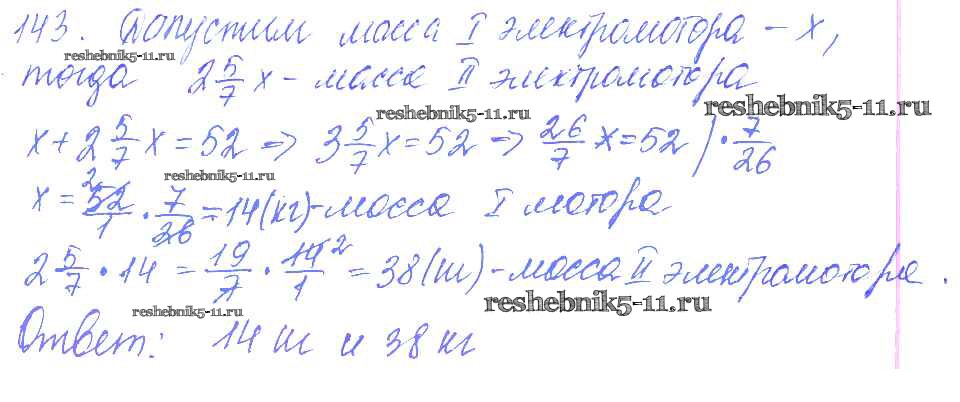 143. Допустим масса I электромотора - x,
reshebnik5-11.ru
тогда 2 5/7 x - масса II электромотора
reshebnik5-11.ru
reshebnik5-11.ru
x + 2 5/7 x = 52 => 3 5/7 x = 52 => 26/7 x = 52 | · 7/26
reshebnik5-11.ru
x = 52/1 · 7/26 = 14 (кг) - масса I мотора
2 5/7 · 14 = 19/7 · 14/1 = 38 (кг) - масса II электромотора.
reshebnik5-11.ru
reshebnik5-11.ru
Ответ: 14 кг и 38 кг